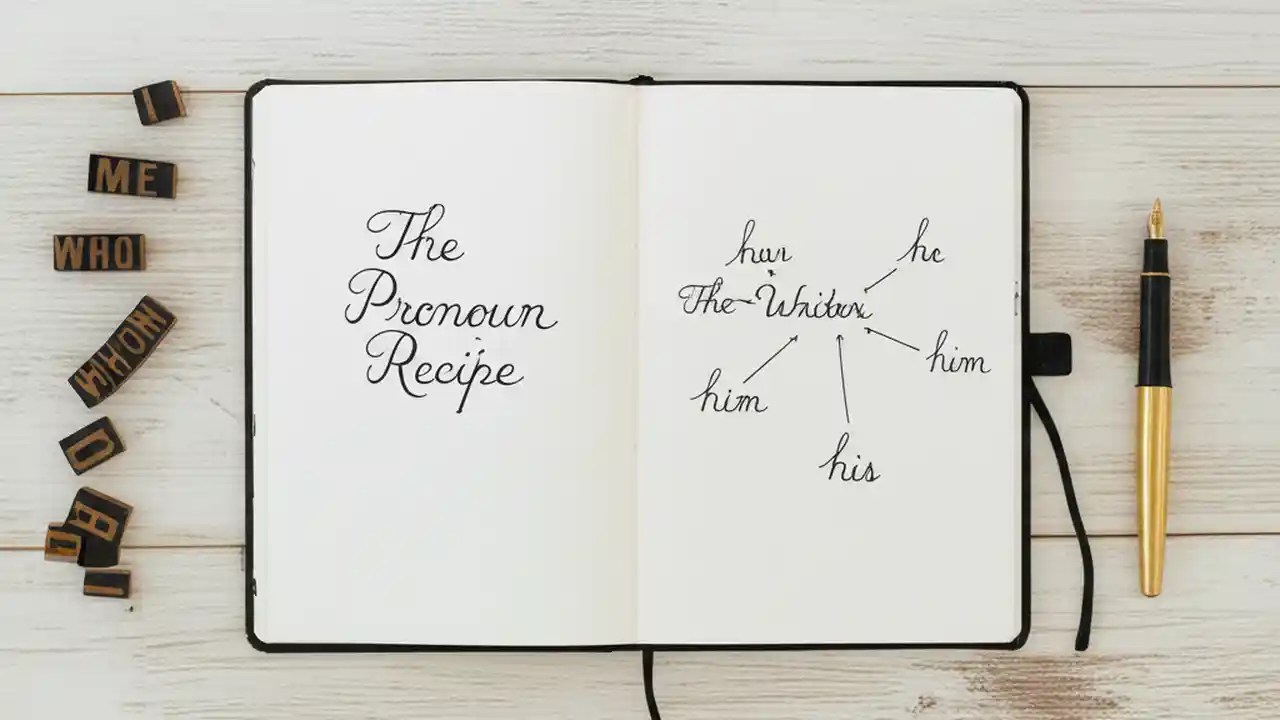 I
ME
WHO
WHOM
The
Pronoun
Recipe
he
The
him
him
his